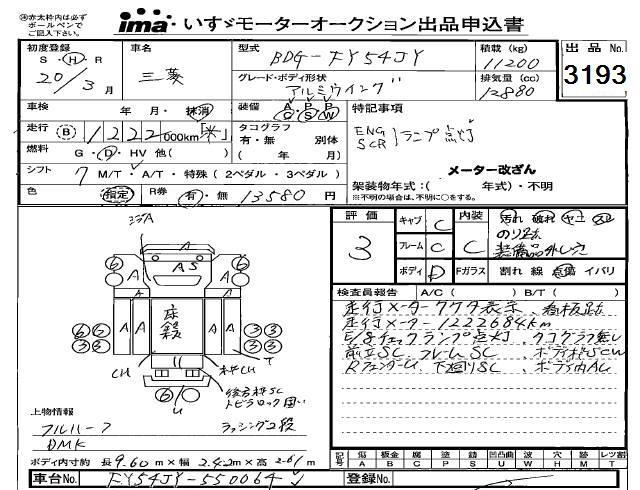 ※赤太枠内は必ず
ボールペンで
ご記入下さい。
ima いすゞモーターオークション出品申込書
初度登録 S・H・R 20/3月
車名 三菱
型式 BDG-FY54JY
積載 (kg) 11200
出品No. 3193
グレード・ボディ形状 アルミウイング
排気量 (cc) 12880
車検 年 月・抹消
装備 A P P C S W
特記事項
走行 B 1222000km[*]
タコグラフ 有・無 別体 ( 年 月)
ENG SCR ランプ点灯
燃料 G・D・HV 他( )
メーター改ざん
シフト 7 M/T・A/T・特殊 (2ペダル・3ペダル)
架装物年式:( 年式)・不明
※不明の場合は、不明に○をする。
色 指定 R券 有・無 13580円
評価 3
キャブ C 内装 C 汚れ 破れ ヤニ スレ
のり跡
フレーム C 装備品外し穴
ボディ D Fガラス 割れ 線 点傷 イバリ
検査員報告 A/C ( ) B/T ( )
走行メーターケタ表示、看板跡
走行メーター1222684km
E/gチェックランプ点灯、タコグラフ無し
前立SC フレームSC
Rフェンダー 下廻りSC、ボディ内AU
ココA
A S
6 6
A A A A
床殺
6 6 3 3
3 3 3 3
T
CH 枠CH
6
U
後方枠SC
トビラロック固い
上物情報
フルハーフ ラッシング2段
DMK
ボディ内寸約 長9.60m×幅2.42m×高2.61m
記号 傷A 板金B 腐C 塗P 錆S 凹凸曲U 波W 穴H 跡T 補M レツ割
車台No. FY54JY-550064
登録No.